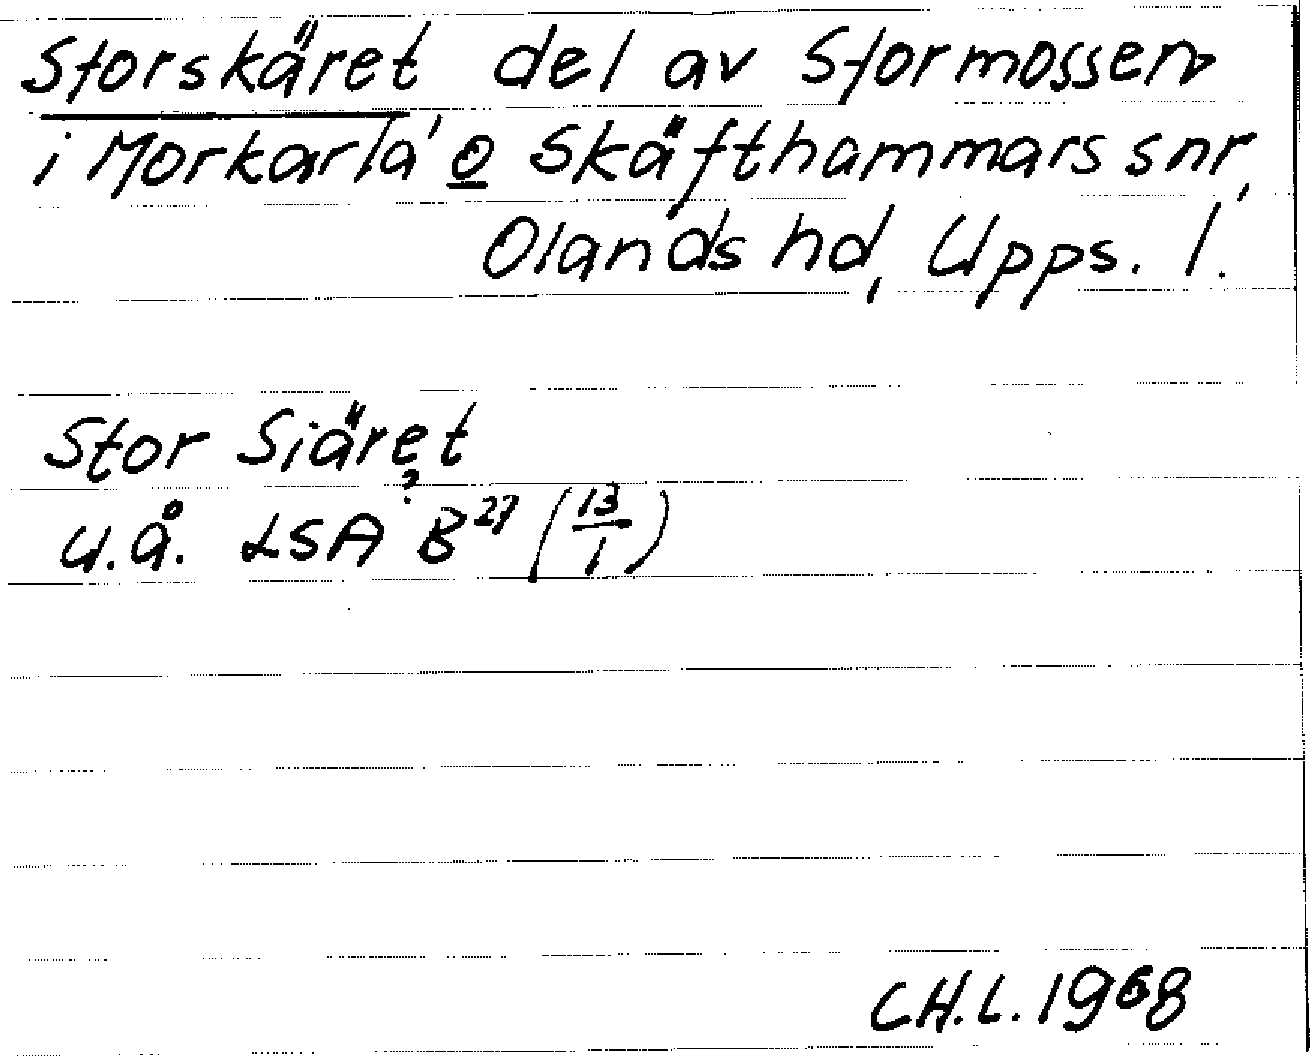 Storskäret del av Stormossen
i Morkarla o Skäfthammars snr,
Olands hd, Upps. l.
Stor Siäret
?
u.å. LSA B²⁷ (13/1)
C.H.L. 1968